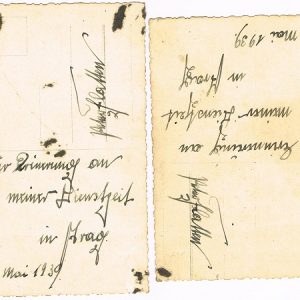 Zur Erinnerung an
meiner Dienstzeit
in Prag.
Mai 1939
Erinnerung an
meiner Dienstzeit
in Prag
Mai 1939.